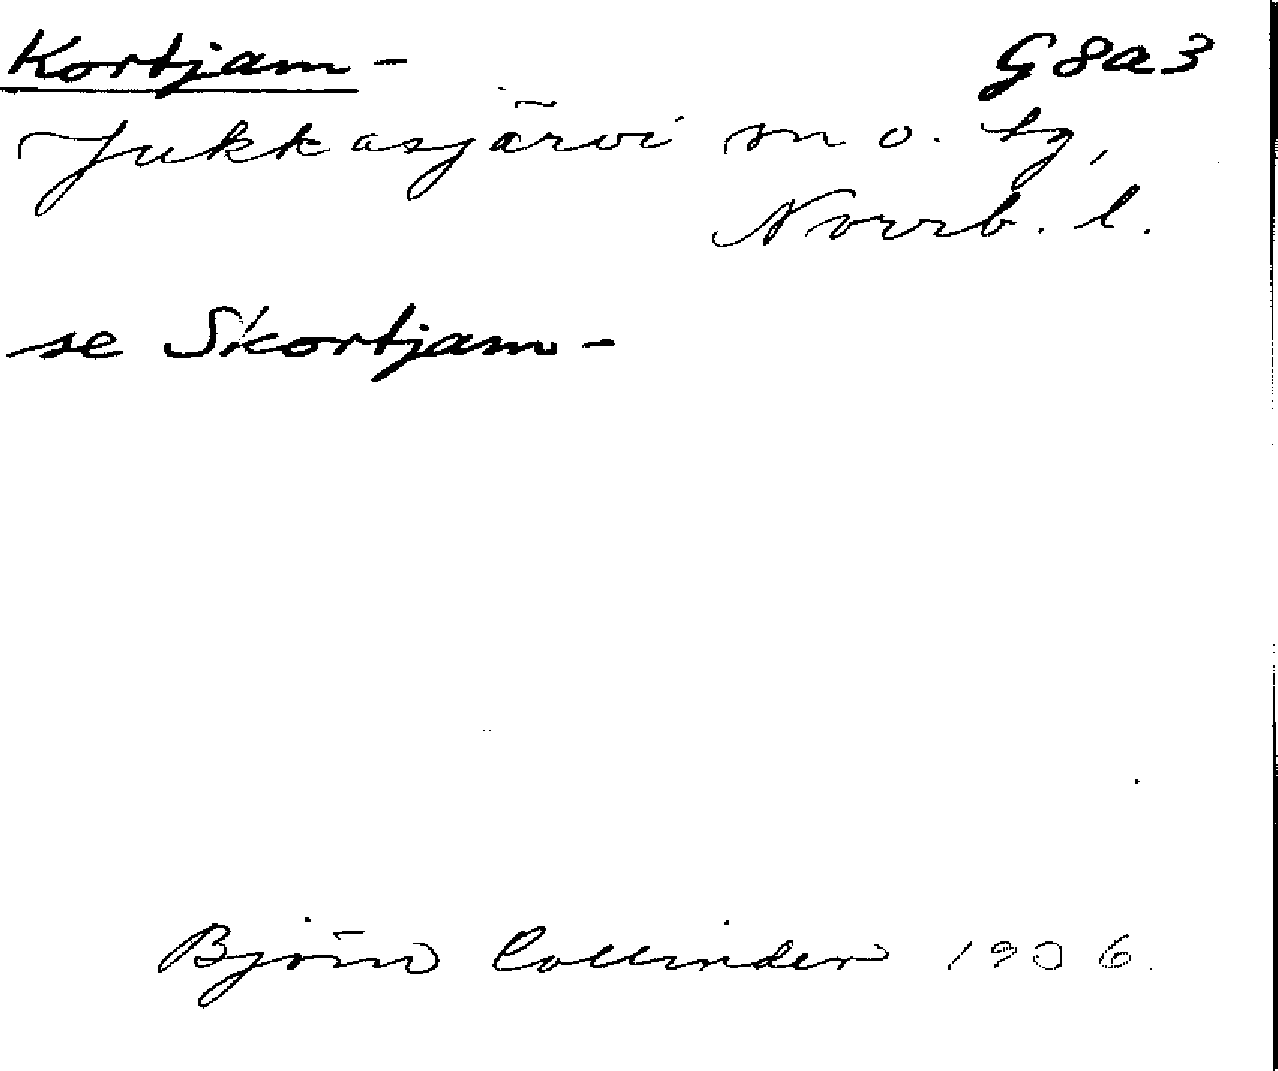 Kortjam- G8a3
Jukkasjärvi sn o. tg,
Norrb. l.
se Skortjam-
Björn Collinder 1906.